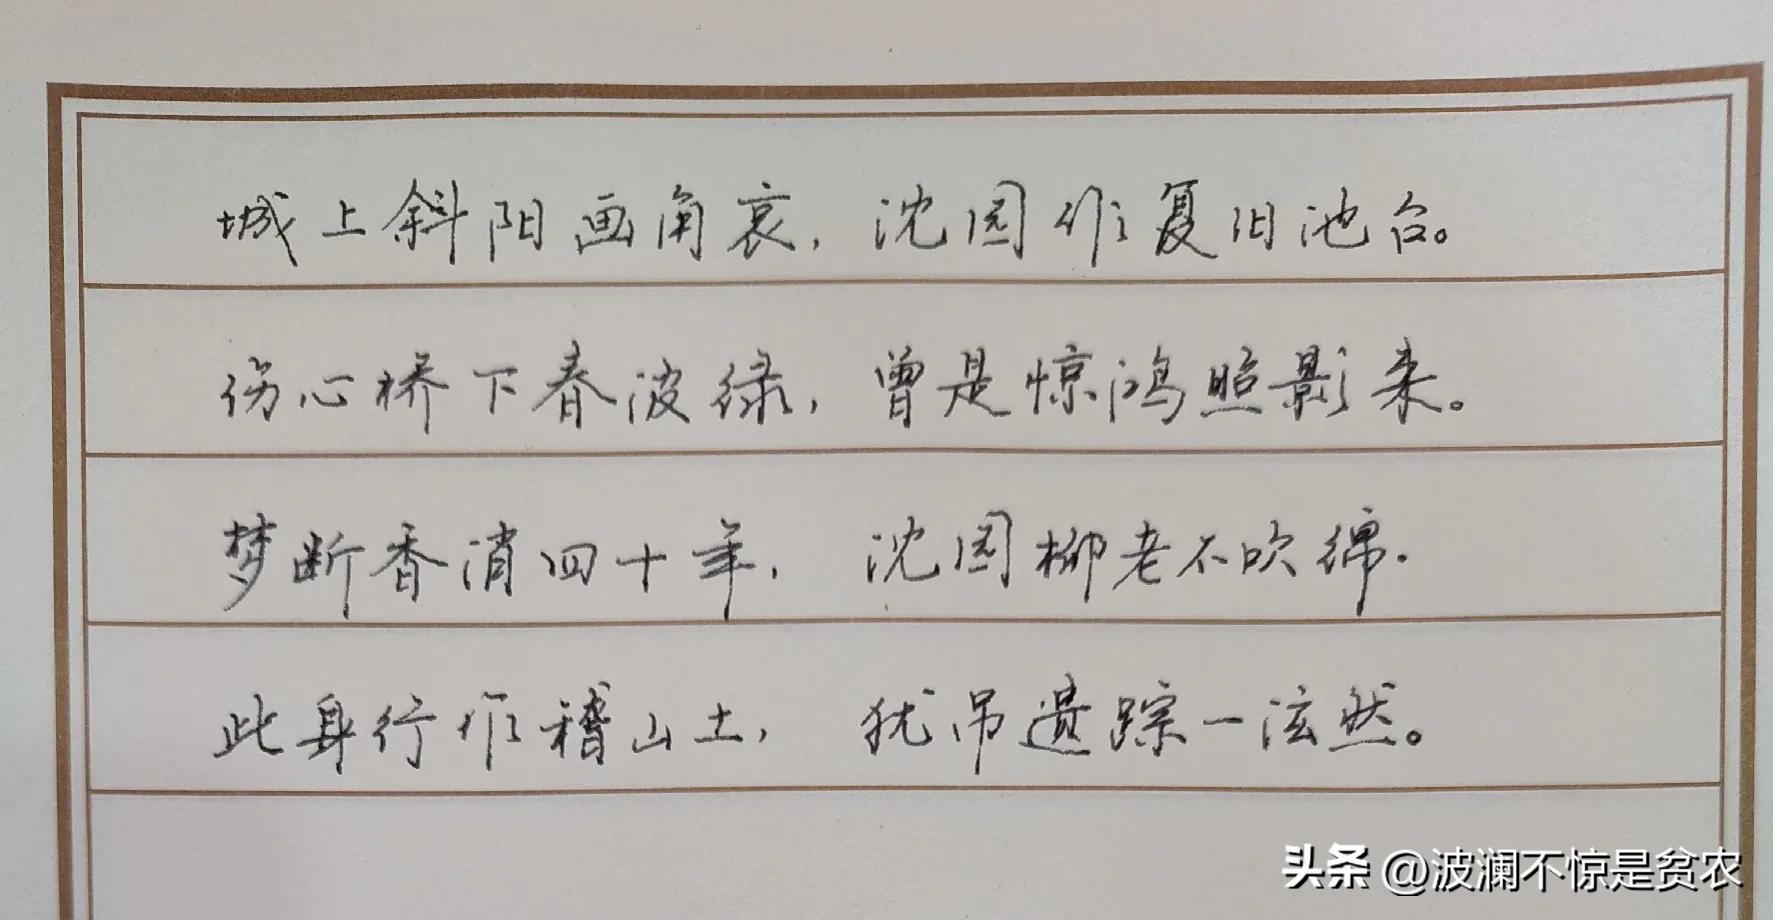 城上斜阳画角哀，沈园作复旧池台。
伤心桥下春波绿，曾是惊鸿照影来。
梦断香消四十年，沈园柳老不吹绵.
此身行作稽山土，犹吊遗踪一泫然。
头条 @波澜不惊是贫农